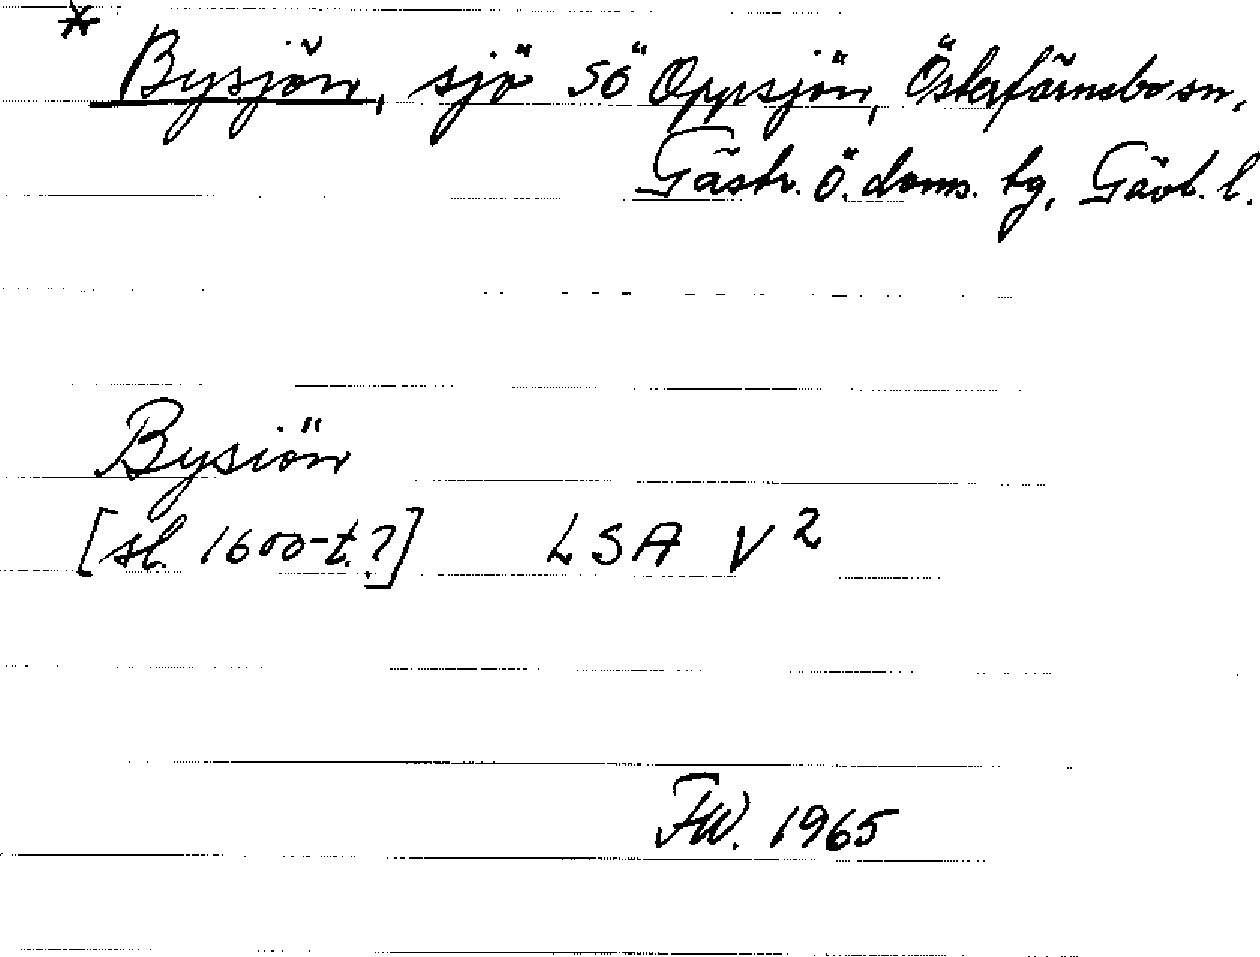 * Bysjön, sjö SÖ Oppsjön, Österfärnebo sn,
Gästr. Ö. doms. tg, Gävl. l.
Bysiön
[sl. 1600-t.?] LSA V²
FW. 1965